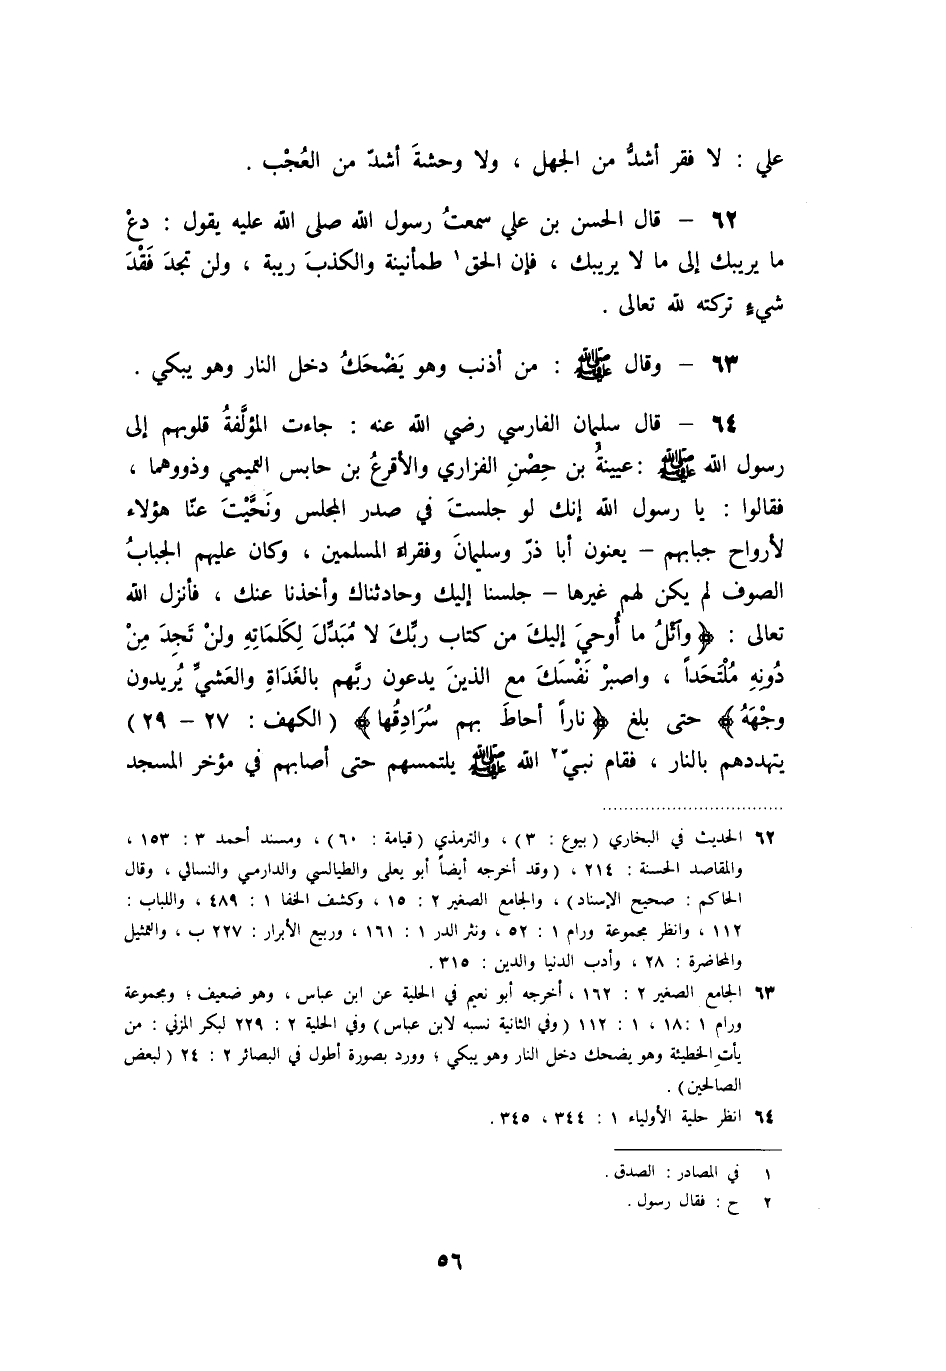 علي : لا فقر أشدُّ من الجهل ، ولا وحشةَ أشدّ من العُجْب .
٦٢ – قال الحسن بن علي سمعتُ رسول الله صلى الله عليه يقول : دعْ
ما يريبك إلى ما لا يريبك ، فإن الحق١ طمأنينة والكذبَ ريبة ، ولن تجدَ فَقْدَ
شيءٍ تركته لله تعالى .
٦٣ – وقال ﷺ : من أذنب وهو يَضْحَكُ دخل النار وهو يبكي .
٦٤ – قال سلمان الفارسي رضي الله عنه : جاءت المؤلَّفةُ قلوبهم إلى
رسول الله ﷺ : عيينةُ بن حِصْنِ الفزاري والأقرعُ بن حابس التميمي وذووهما ،
فقالوا : يا رسول الله إنك لو جلستَ في صدر المجلس ونَحَّيْتَ عنّا هؤلاء
لأرواح جبابهم – يعنون أبا ذرّ وسلمانَ وفقراءَ المسلمين ، وكان عليهم الجبابُ
الصوف لم يكن لهم غيرها – جلسنا إليك وحادثناك وأخذنا عنك ، فأنزل الله
تعالى : ﴿ وآتْلُ ما أُوحيَ إليكَ من كتاب ربِّكَ لا مُبَدِّلَ لِكَلماتِهِ ولنْ تجِدَ مِنْ
دُونِهِ مُلْتَحَداً ، واصبرْ نَفْسَكَ مع الذينَ يدعون ربَّهم بالغَدَاةِ والعَشيِّ يُريدون
وجْهَهُ ﴾ حتى بلغ ﴿ ناراً أحاطَ بهم سُرَادِقُها ﴾ (الكهف : ٢٧ – ٢٩)
يتهددهم بالنار ، فقام نبيّ٢ الله ﷺ يلتمسهم حتى أصابهم في مؤخر المسجد
٦٢ الحديث في البخاري (بيوع : ٣) ، والترمذي (قيامة : ٦٠) ، ومسند أحمد ٣ : ١٥٣ ،
والمقاصد الحسنة : ٢١٤ ، (وقد أخرجه أيضاً أبو يعلى والطيالسي والدارمي والنسائي ، وقال
الحاكم : صحيح الإسناد) ، والجامع الصغير ٢ : ١٥ ، وكشف الخفا ١ : ٤٨٩ ، واللباب :
١١٢ ، وانظر مجموعة ورام ١ : ٥٢ ، ونثر الدر ١ : ١٦١ ، وربيع الأبرار : ٢٢٧ ب ، والتمثيل
والمحاضرة : ٢٨ ، وأدب الدنيا والدين : ٣١٥ .
٦٣ الجامع الصغير ٢ : ١٦٢ ، أخرجه أبو نعيم في الحلية عن ابن عباس ، وهو ضعيف ؛ ومجموعة
ورام ١ : ١٨ ، ١ : ١١٢ (وفي الثانية نسبه لابن عباس) وفي الحلية ٢ : ٢٢٩ لبكر المزني : من
يأتِ الخطيئة وهو يضحك دخل النار وهو يبكي ؛ وورد بصورة أطول في البصائر ٢ : ٢٤ (لبعض
الصالحين) .
٦٤ انظر حلية الأولياء ١ : ٣٤٤ ، ٣٤٥ .
١ في المصادر : الصدق .
٢ ح : فقال رسول .
٥٦